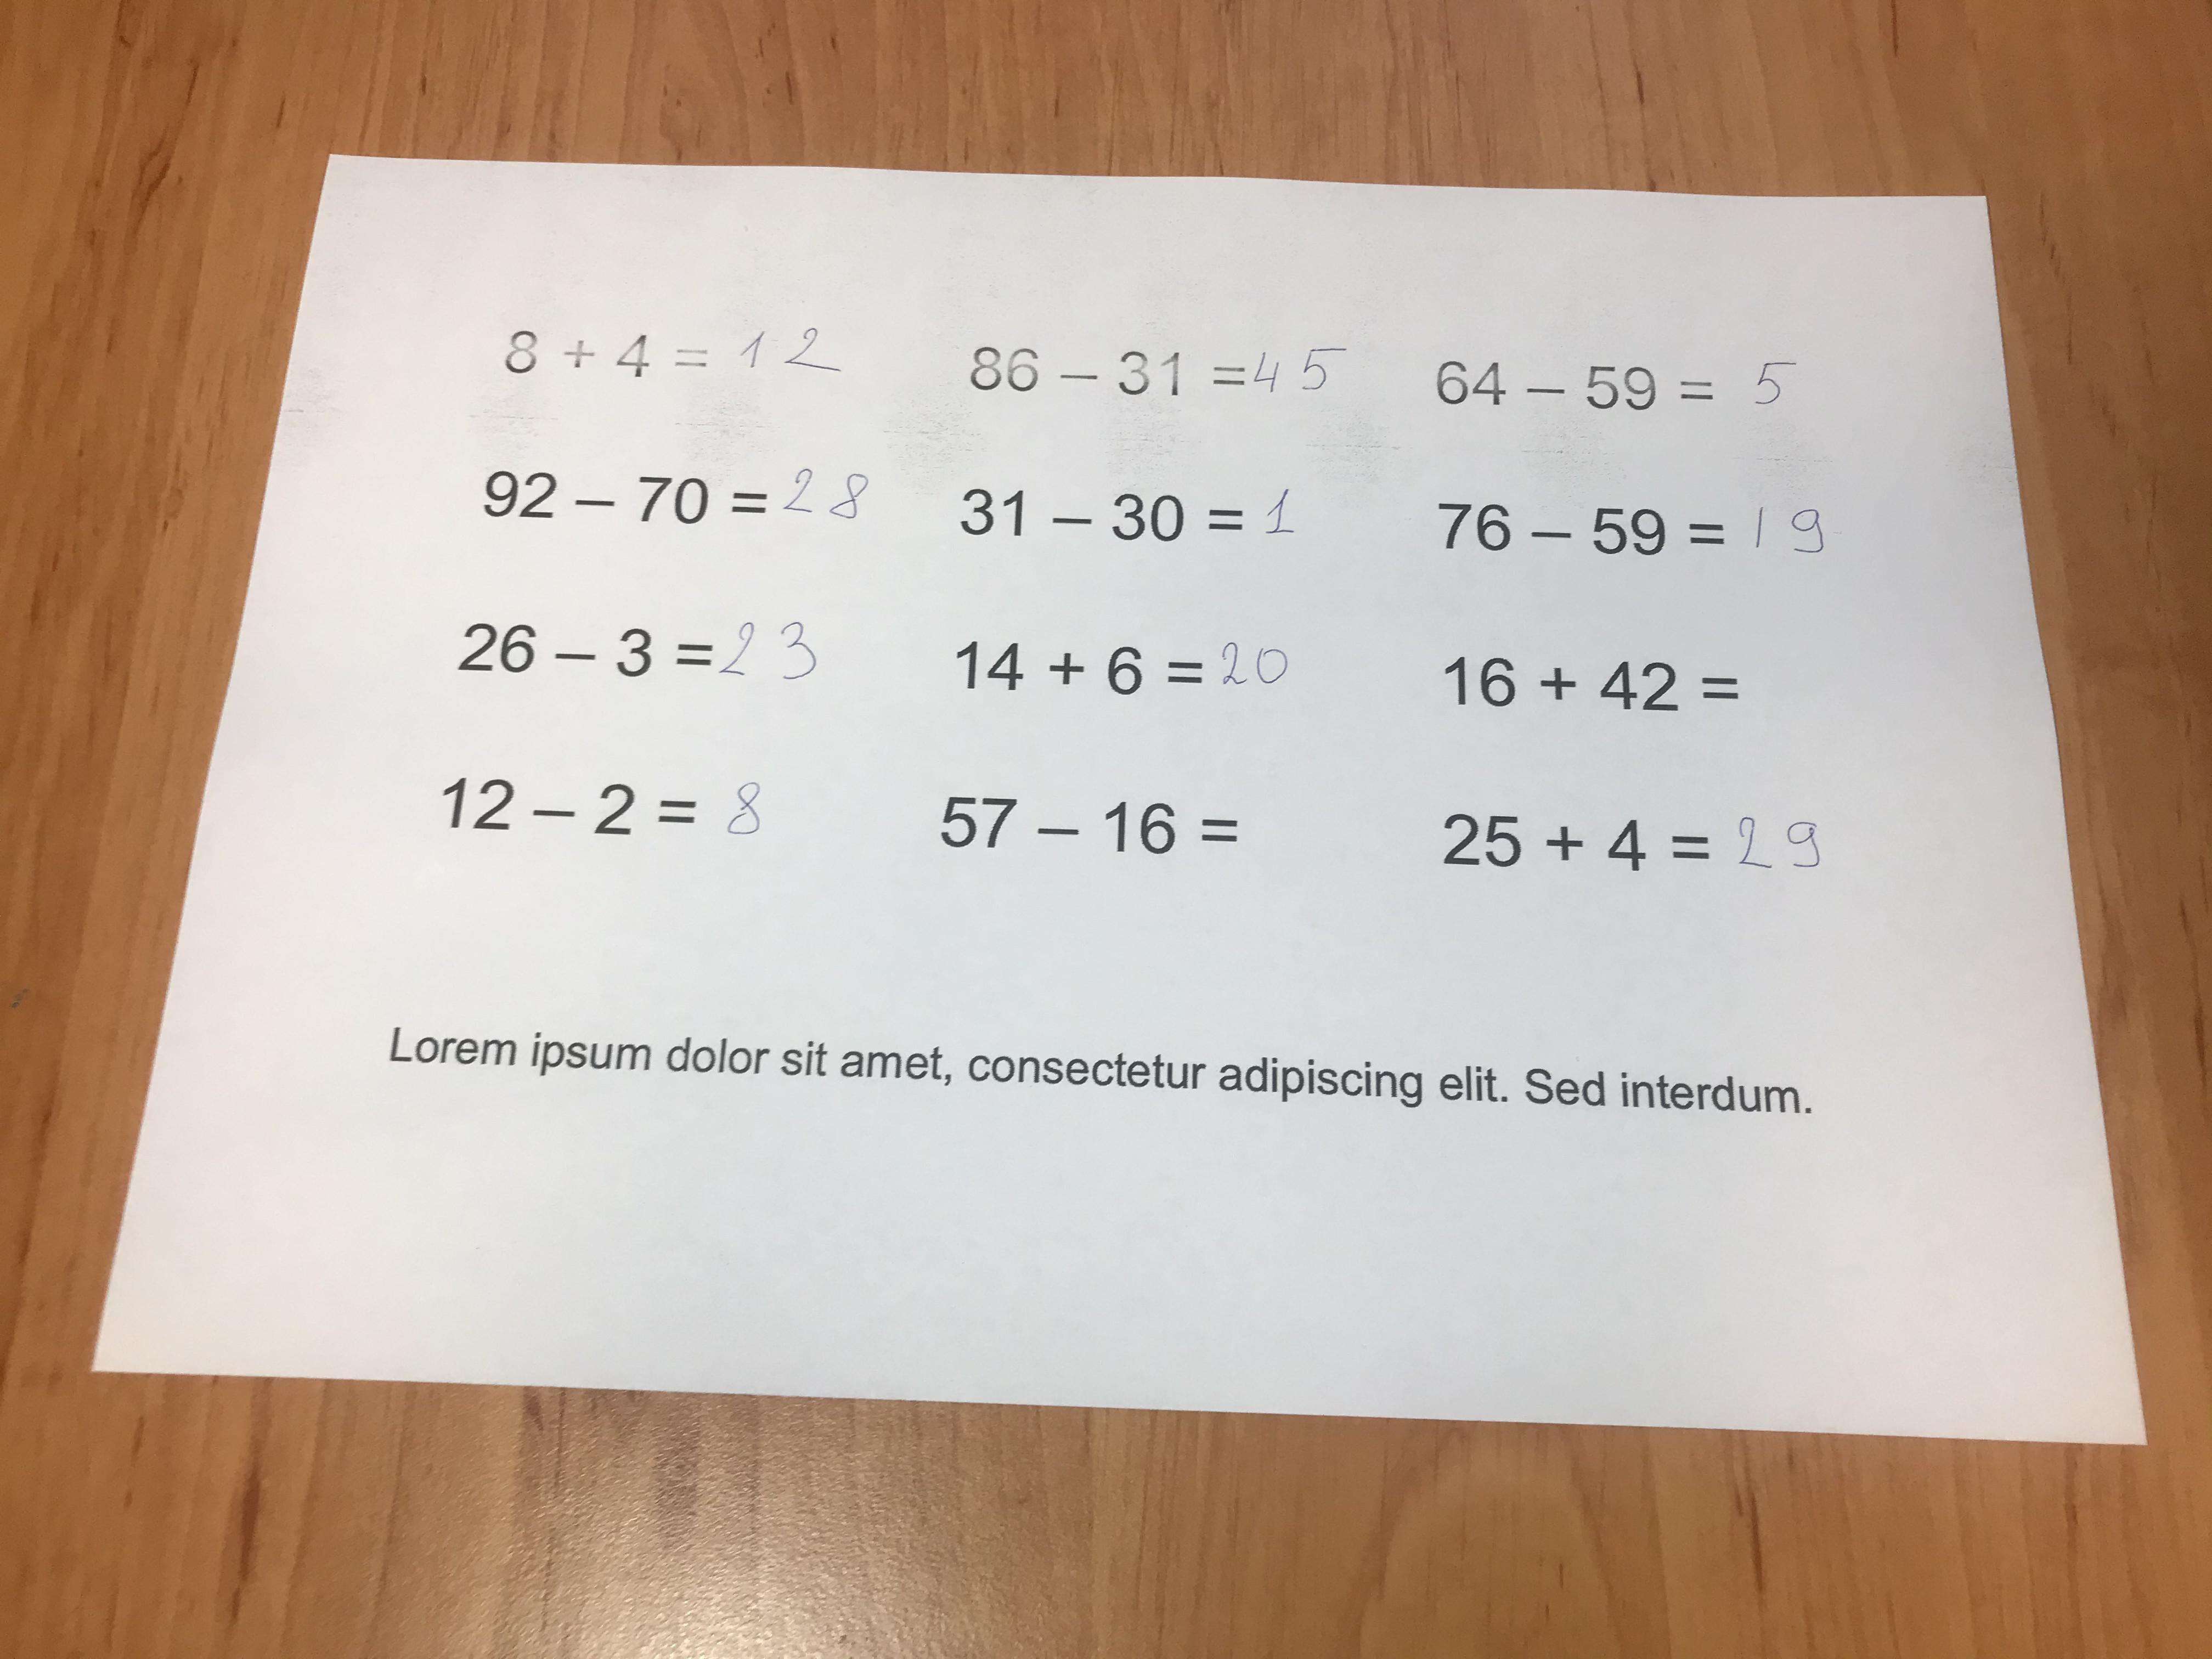 8 + 4 = 12 86 – 31 = 45 64 – 59 = 5
92 – 70 = 28 31 – 30 = 1 76 – 59 = 19
26 – 3 = 23 14 + 6 = 20 16 + 42 =
12 – 2 = 8 57 – 16 = 25 + 4 = 29
Lorem ipsum dolor sit amet, consectetur adipiscing elit. Sed interdum.